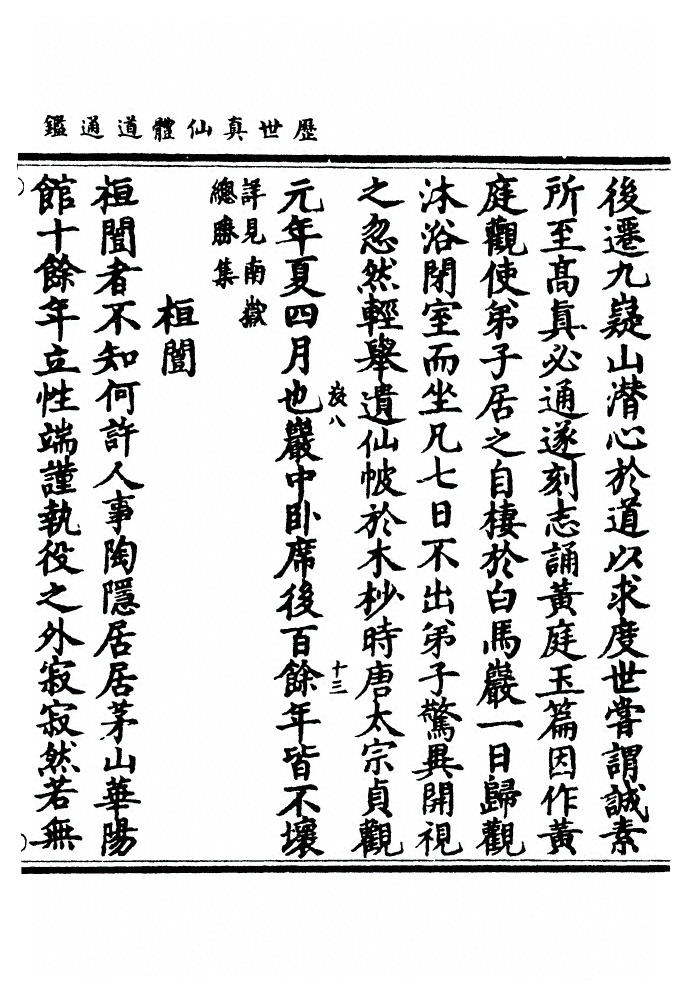 歷世真仙體道通鑑
後遷九嶷山潜心於道以求度世嘗謂誠素
所至髙真必通遂刻志誦黃庭玉篇因作黃
庭觀使弟子居之自棲於白馬巖一日歸觀
沐浴閉室而坐凡七日不出弟子驚異開視
之忽然輕舉遺仙帔於木杪時唐太宗貞觀
元年夏四月也巖中卧席後百餘年皆不壞
詳見南嶽
總勝集
桓闓
桓闓者不知何許人事陶隱居居茅山華陽
館十餘年立性端謹執役之外寂寂然若無
十三